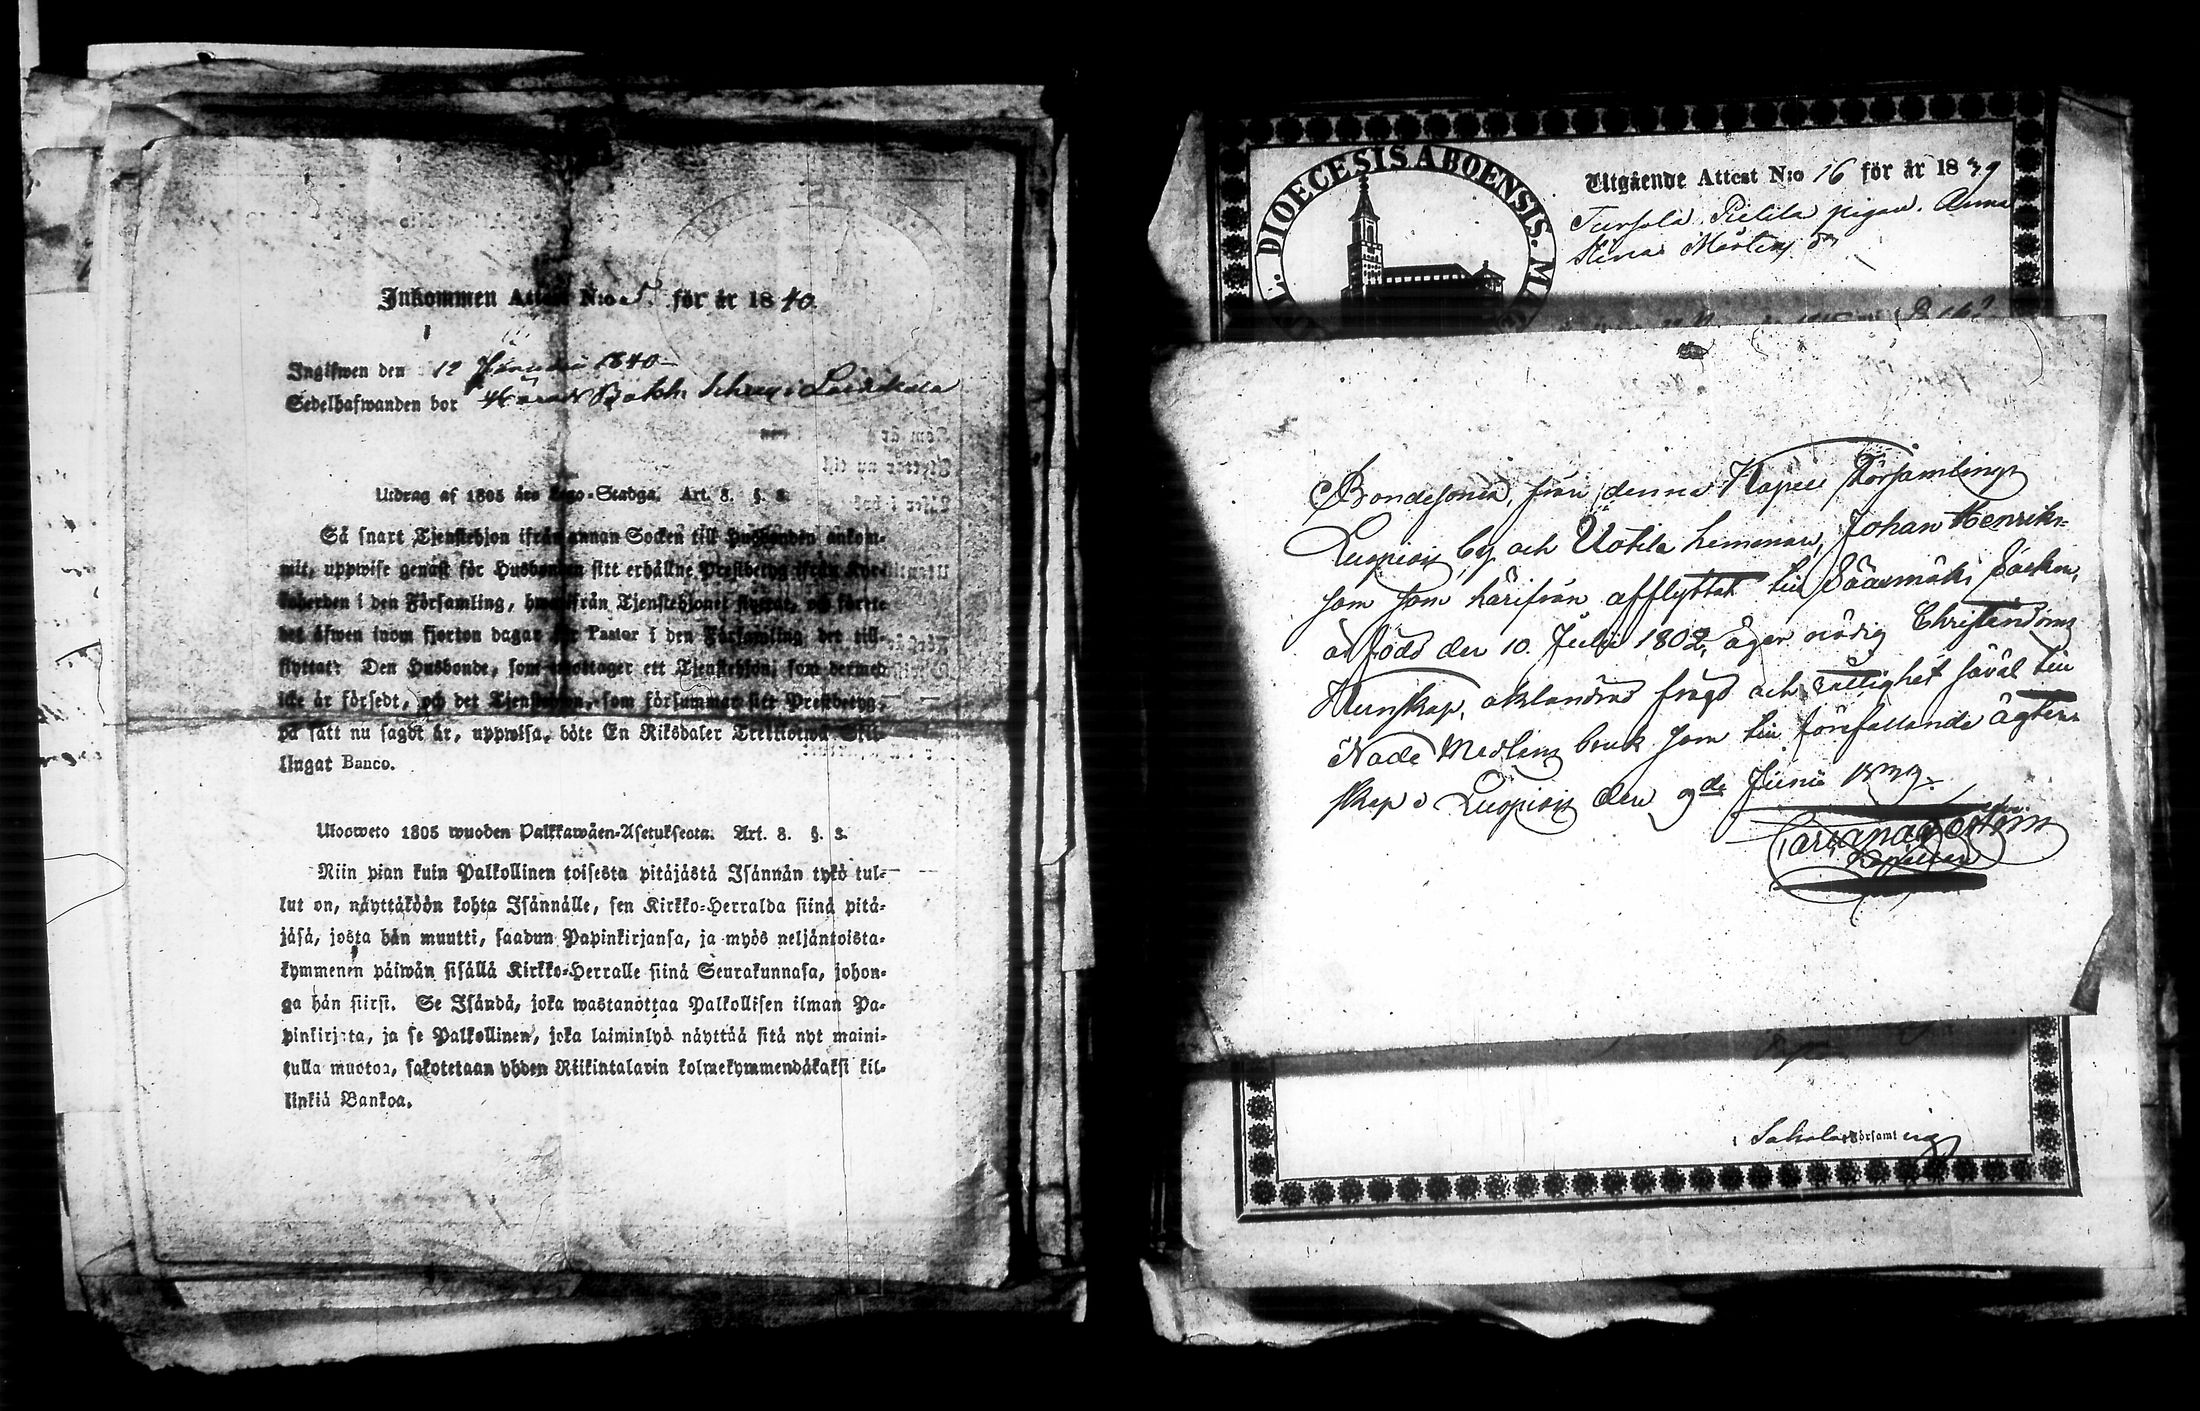 Inkommen Attest N:o 5. för år 1840.
Ingifwen den 12 Januarii 1840
Sedelhafwanden bor
Utdrag af 1805 års Lego-Stadga. Art. 8. §. 3.
Så snart Tjenstehjon ifrån annan Socken till Husbonden ankom-
mit, uppwise genast för Husbonden sitt erhållne Prestbetyg ifrån Kyrko-
herden i den Församling, hwarifrån Tjenstehjonet flyttat, och förete
det äfwen inom fjorton dagar för Pastor i den Församling det till-
flyttat: Den Husbonde, som emottager ett Tjenstehjon, som dermed
icke är försedt, och det Tjenstehjon, som försummar sitt Prestbetyg,
på sätt nu sagdt är, uppwisa, böte En Riksdaler Trettiotwå Skil-
lingar Banco.
Ulosweto 1805 wuoden Palkkawäen-Asetuksesta. Art. 8. §. 3.
Niin pian kuin Palkollinen toisesta pitäjästä Isännän tykö tul-
lut on, näyttäköön kohta Isännälle, sen Kirkko-Herralda siinä pitä-
jäsä, josta hän muutti, saadun Papinkirjansa, ja myös neljäntoista-
kymmenen päiwän sisällä Kirkko-Herralle siinä Seurakunnasa, johon-
ga hän siirsi. Se Isändä, joka wastanottaa Palkollisen ilman Pa-
pinkirjata, ja se Palkollinen, joka laiminlyö näyttää sitä nyt maini-
tulla muotoa, sakotetaan yhden Riikintalarin kolmekymmendäkaksi kil-
linkiä Bankoa.
DIOECESIS ABOENSIS.
Utgående Attest N:o 16 för år 1839
Tursola Pietila pigan Anna
Stina Mårtens dr
Bondesonen, från denna Kapell Församlings
Luopiois by och Uotila hemman, Johan Henriks-
son som härifrån afflyttat till Sääxmäki Socken,
är född den 10. Julii 1802, äger nödig Christendoms
Kunskap, oklandrad frägd och rättighet såväl till
Nade Medlens bruk som till förefallande ägten-
skap. Luopiois den 9de Junii 1839.
Kapellan
i Sahalax Församling